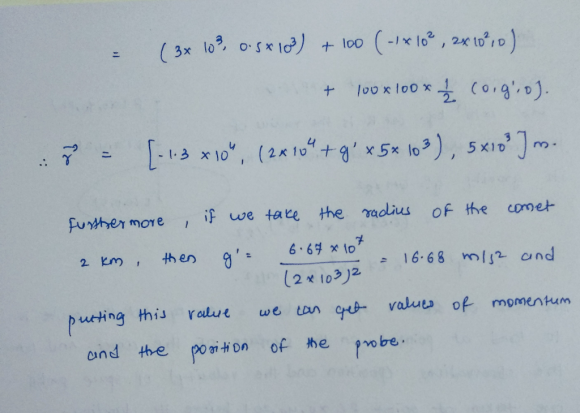 = (3x 10³, 0.5x10³) + 100 (-1x10², 2x10²,0)
+ 100x100x 1/2 (0,g',0).
∴ r⃗ = [-1.3 x10⁴, (2x10⁴ + g' x 5x 10³), 5x10³] m.
Furthermore, if we take the radius of the comet
2 km, then g' = 6.67 x 10⁷ / (2x10³)² = 16.68 m/s² and
putting this value we can get values of momentum
and the position of the probe.